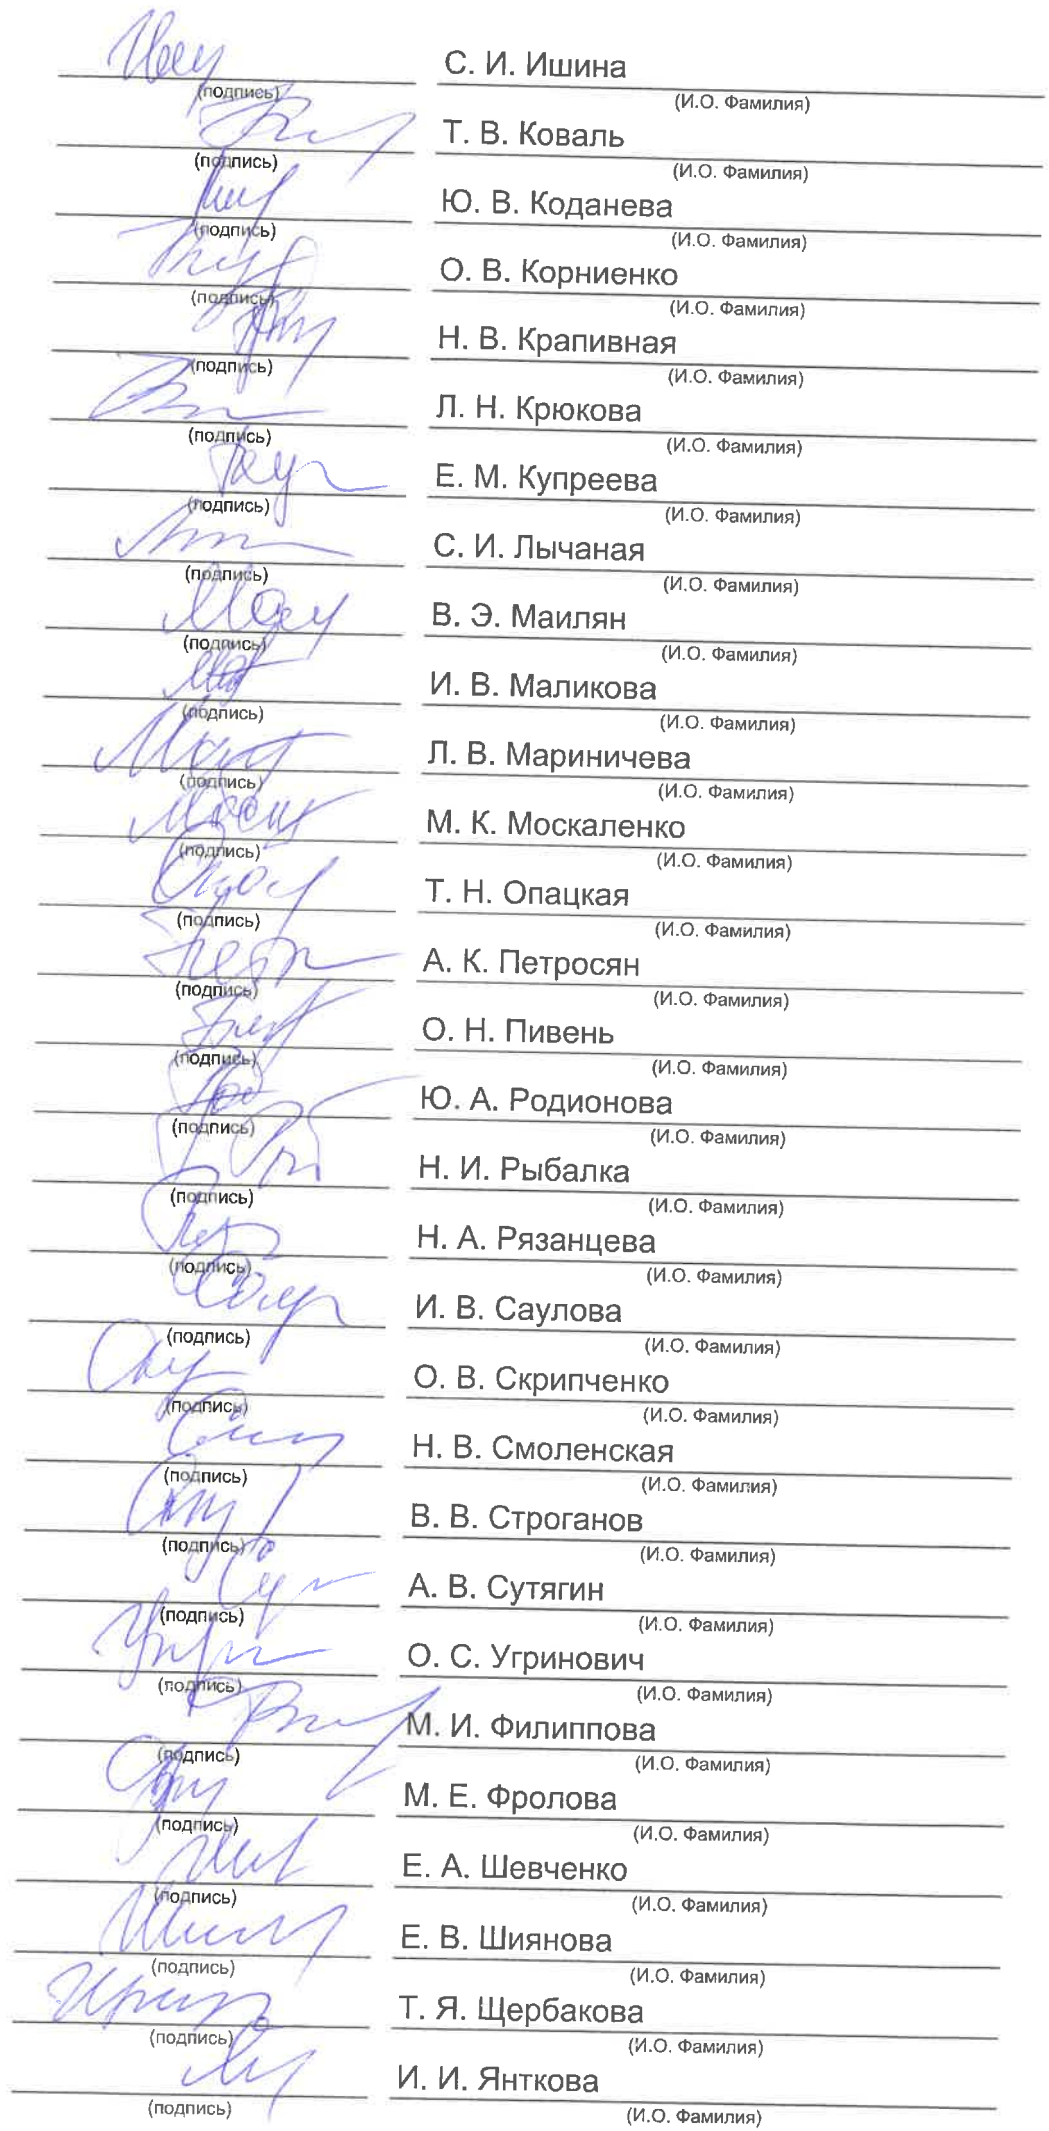 С. И. Ишина
(подпись) (И.О. Фамилия)
Т. В. Коваль
(подпись) (И.О. Фамилия)
Ю. В. Коданева
(подпись) (И.О. Фамилия)
О. В. Корниенко
(подпись) (И.О. Фамилия)
Н. В. Крапивная
(подпись) (И.О. Фамилия)
Л. Н. Крюкова
(подпись) (И.О. Фамилия)
Е. М. Купреева
(подпись) (И.О. Фамилия)
С. И. Лычаная
(подпись) (И.О. Фамилия)
В. Э. Маилян
(подпись) (И.О. Фамилия)
И. В. Маликова
(подпись) (И.О. Фамилия)
Л. В. Мариничева
(подпись) (И.О. Фамилия)
М. К. Москаленко
(подпись) (И.О. Фамилия)
Т. Н. Опацкая
(подпись) (И.О. Фамилия)
А. К. Петросян
(подпись) (И.О. Фамилия)
О. Н. Пивень
(подпись) (И.О. Фамилия)
Ю. А. Родионова
(подпись) (И.О. Фамилия)
Н. И. Рыбалка
(подпись) (И.О. Фамилия)
Н. А. Рязанцева
(подпись) (И.О. Фамилия)
И. В. Саулова
(подпись) (И.О. Фамилия)
О. В. Скрипченко
(подпись) (И.О. Фамилия)
Н. В. Смоленская
(подпись) (И.О. Фамилия)
В. В. Строганов
(подпись) (И.О. Фамилия)
А. В. Сутягин
(подпись) (И.О. Фамилия)
О. С. Угринович
(подпись) (И.О. Фамилия)
М. И. Филиппова
(подпись) (И.О. Фамилия)
М. Е. Фролова
(подпись) (И.О. Фамилия)
Е. А. Шевченко
(подпись) (И.О. Фамилия)
Е. В. Шиянова
(подпись) (И.О. Фамилия)
Т. Я. Щербакова
(подпись) (И.О. Фамилия)
И. И. Янткова
(подпись) (И.О. Фамилия)